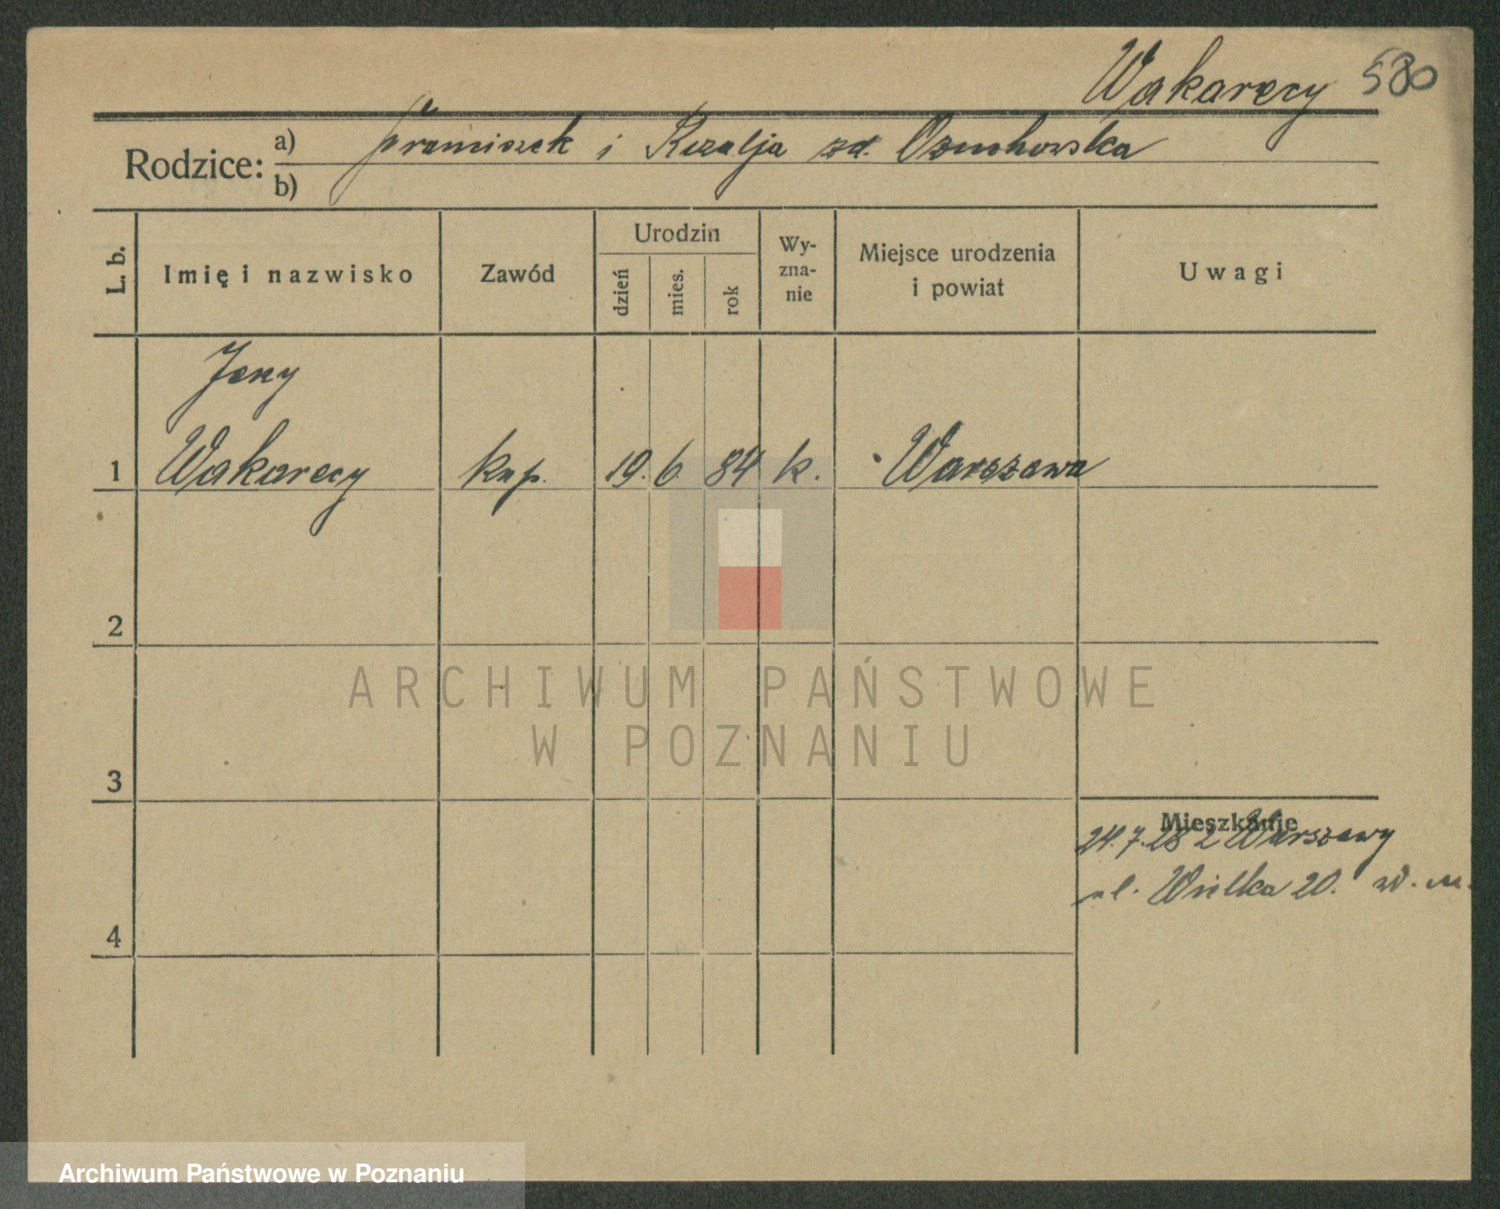 Wakarecy 580
Rodzice: a) Franciszek i Rozalja zd. Ozuchowska
b)
L. b.
Imię i nazwisko
Zawód
Urodzin
dzień
mies.
rok
Wy-
zna-
nie
Miejsce urodzenia
i powiat
Uwagi
Jerzy
1 Wakarecy kup. 19. 6. 84 k. Warszawa
2
ARCHIWUM PAŃSTWOWE
W POZNANIU
3
Mieszkanie
24.7.28 z Warszawy
4
ul. Wielka 20. w. m.
Archiwum Państwowe w Poznaniu